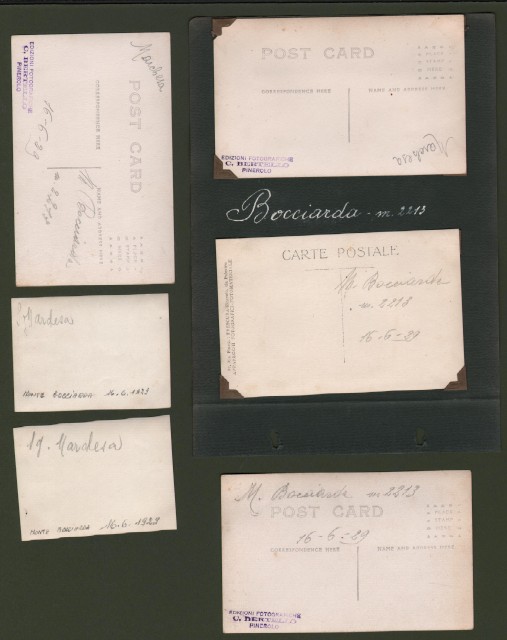 EDIZIONI FOTOGRAFICHE
C. BERTELLO
PINEROLO
POST CARD
CORRESPONDENCE HERE
NAME AND ADDRESS HERE
16-6-29
M. Bocciarda
m 2213
PLACE
STAMP
HERE
POST CARD
CORRESPONDENCE HERE
NAME AND ADDRESS HERE
PLACE
STAMP
HERE
EDIZIONI FOTOGRAFICHE
C. BERTELLO
PINEROLO
Bocciarda - m. 2213
CARTE POSTALE
M. Bocciarda
m. 2213
16-6-29
MONTE BOCCIARDA 16.6.1929
MONTE BOCCIARDA 16.6.1929
M. Bocciarda m 2213
POST CARD
16-6-29
CORRESPONDENCE HERE
NAME AND ADDRESS HERE
PLACE
STAMP
HERE
EDIZIONI FOTOGRAFICHE
C. BERTELLO
PINEROLO